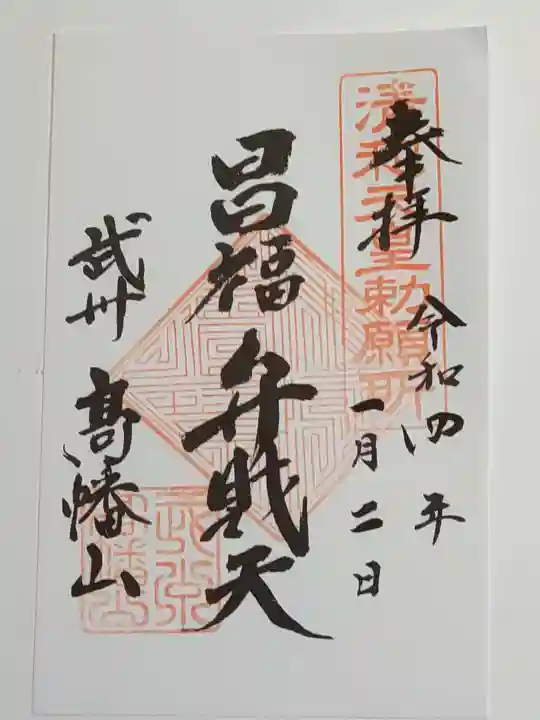 奉拝
清和天皇勅願所
令和四年
一月二日
昌福
弁財天
武州
髙幡山